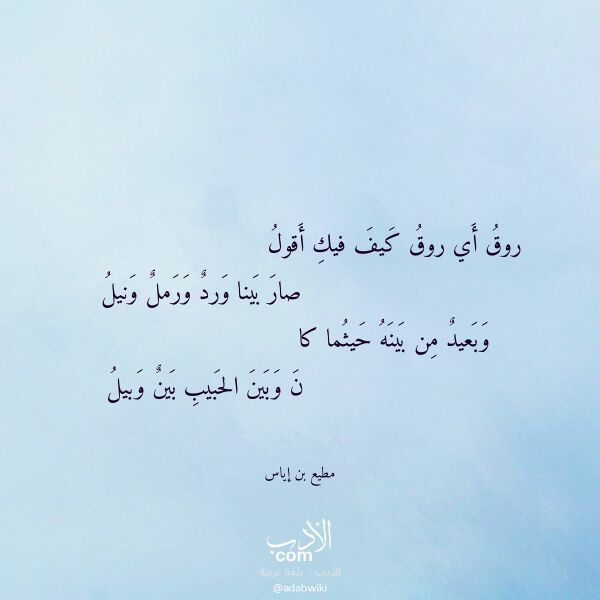 روقُ أَي روقُ كَيفَ فيكِ أَقولُ
صارَ بَينا وَردٌ وَرَملٌ وَنيلُ
وَبَعيدٌ مِن بَينَهُ حَيثُما كا
نَ وَبَينَ الحَبيبِ بَينٌ وَبيلُ
مطيع بن إياس
الأدب
com
الأدب .. بلغة عربية
@adabwiki